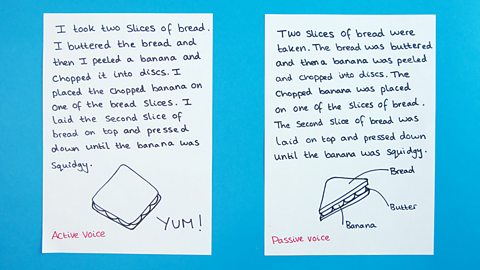 I took two slices of bread.
I buttered the bread and
then I peeled a banana and
chopped it into discs. I
placed the chopped banana on
one of the bread slices. I
laid the second slice of
bread on top and pressed
down until the banana was
squidgy.
YUM!
Active voice
Two slices of bread were
taken. The bread was buttered
and then a banana was peeled
and chopped into discs. The
chopped banana was placed
on one of the slices of bread.
The second slice of bread was
laid on top and pressed down
until the banana was squidgy.
Bread
Butter
Banana
Passive voice